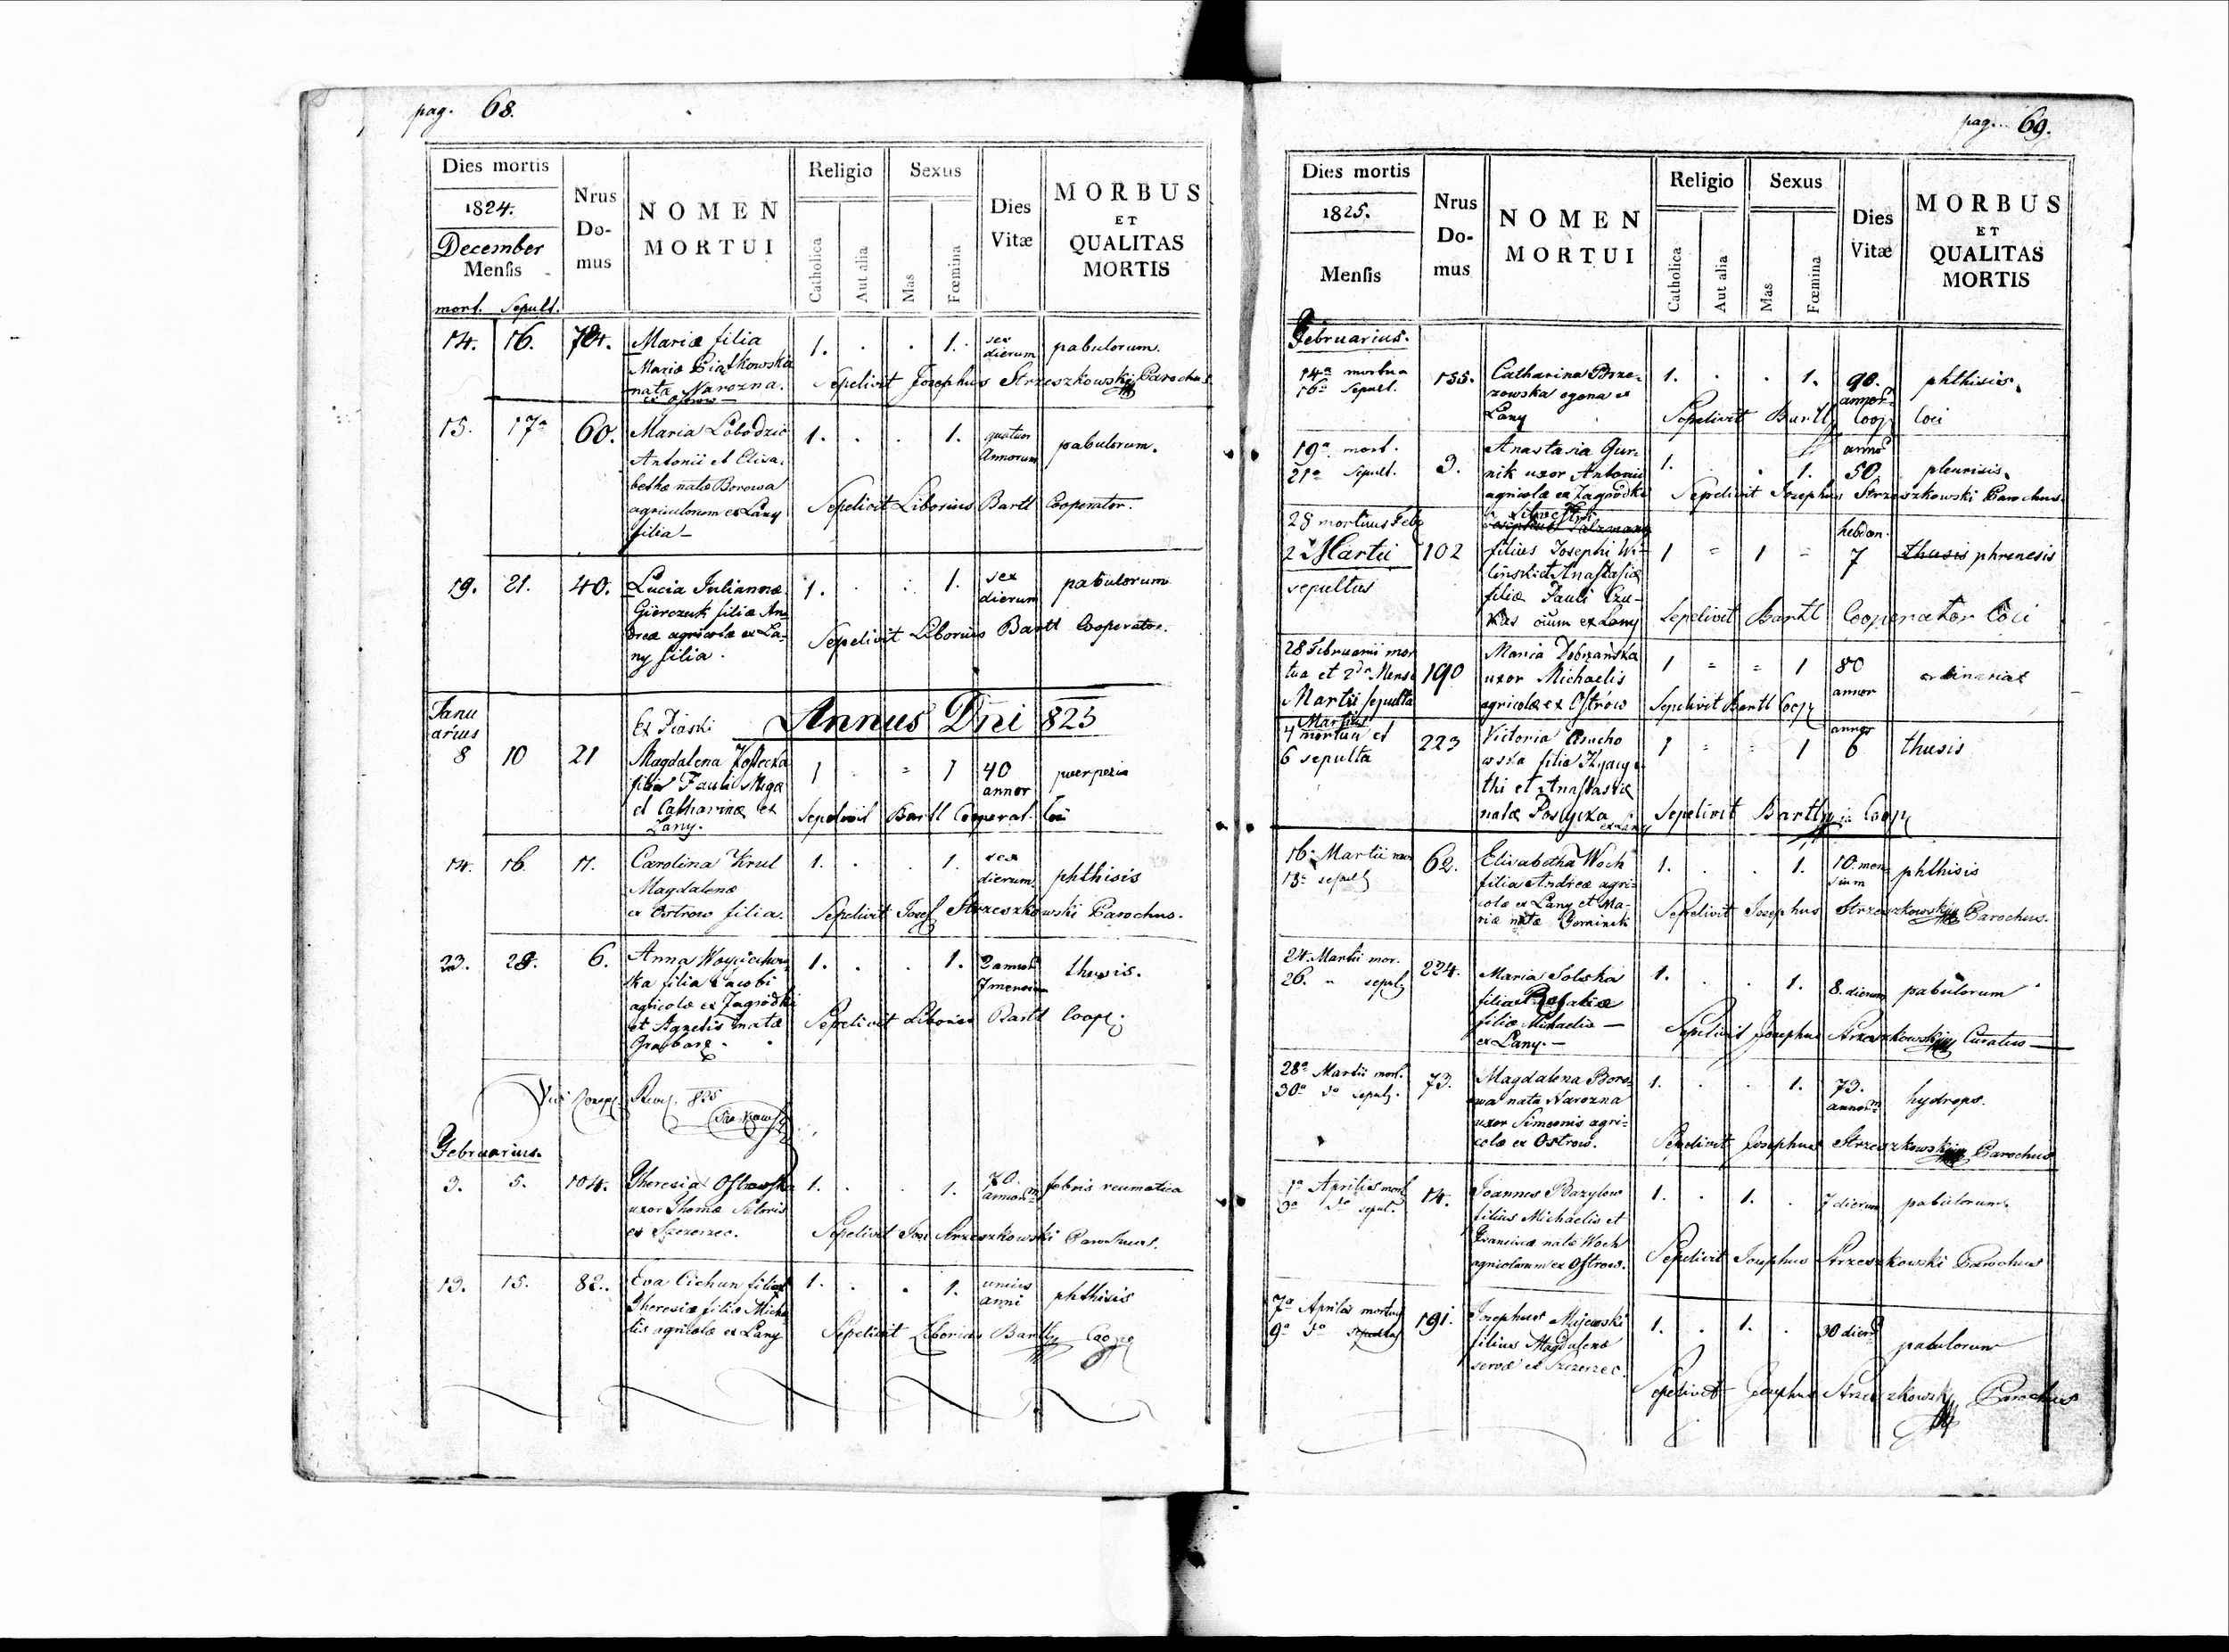 pag. 68.
Dies mortis
1824.
December
Mensis
mort. Sepult.
Nrus
Do-
mus
NOMEN
MORTUI
Religio
Catholica
Aut alia
Sexus
Mas
Fœmina
Dies
Vitæ
MORBUS
ET
QUALITAS
MORTIS
14. 16. Maria filia 1. . . 1. sex dierum pabulorum.
Maria Piątkowska
nata Narozna. Sepelivit Josephus Strzeszkowski Parochus
ex Ostrow
15. 17a 60. Maria Lobodzic 1. . . 1. quatuor Annorum pabulorum.
Antonii et Elisa-
betha nata Borowa
agricolorum ex Lany Sepelivit Liborius Bartl Cooperator.
filia —
19. 21. 40. Lucia Julianna 1. . . 1. sex dierum pabulorum
Gierczuk filia An-
dreæ agricola ex La- Sepelivit Liborius Bartl Cooperator.
ny filia.
Janu
arius
Annus Dni 825
Ex Piaski
8 10 21 Magdalena 1 . = 1 40 annor puerperia
filia Pauli Miga
et Catharinæ ex Sepelivit Bartl Cooperat. Loci
Lany.
14. 16. 17. Carolina Krul 1. . . 1. sex dierum phthisis
Magdalenæ
ex Ostrow filia. Sepelivit Josef Strzeszkowski Parochus.
23. 6. Anna 1. . . 1. 2 7 thusis.
ka filia Jacobi
agricolæ ex Zagrodki
et Agnetis nata Sepelivit Liborius Bartl Coop.
825
Februarius.
3. 5. 104. Theresia Ostrowska 1. . . 1. 70. annorum febris reumatica
uxor Thomæ Sutoris
ex Szczerzec. Sepelivit Jos Strzeszkowski Parochus.
13. 15. 82. Eva Cichun filia 1. . . 1. unius anni phthisis
Theresiæ filia Micha
lis agricolæ ex Lany Sepelivit Liborius Bartl Coop
pag. 69.
Dies mortis
1825.
Mensis
Nrus
Do-
mus
NOMEN
MORTUI
Religio
Catholica
Aut alia
Sexus
Mas
Fœmina
Dies
Vitæ
MORBUS
ET
QUALITAS
MORTIS
Februarius.
14a mortua 155. Catharina Brze- 1. . . 1. 90. annor phthisis.
16a Sepult. zowska egena ex
Lany Sepelivit Bartl Coop Loci
19a mort. 3. Anastasia Gur- 1. . . 1. annor 50. pleurisis.
21a Sepult. nik uxor Antonii
agricolæ ex Zagrodki Sepelivit Josephus Strzeszkowski Parochus.
28 mortuus Feb
2 Martii 102 filius Josephi Wi- 1 = 1 = hebdom. 7 thusis phrenesis
sepultus linski et Anastasiæ
filiæ Pauli Czu-
kas ex Lany Sepelivit Bartl Cooperator Loci
28 Februarii mor 190 Maria Dobrzańska 1 = = 1 80 annor ordinaria
tua et 2da Mense uxor Michaelis
Martii sepulta agricolæ ex Ostrów Sepelivit Bartl Coop
Martius
4 mortua et 223 Victoria 1 = = 1 annor 6 thusis
6 sepulta filia Hyacyn
thi et Anastasiæ
natæ Sepelivit Bartl Coop
ex Lany
16. Martii 62. Elisabetha Woch 1. . . 1. 10. men sium phthisis
18. filia Andreæ agri-
colæ ex Lany et Ma- Sepelivit Josephus Strzeszkowski Parochus.
riæ nata Dominik
24. Martii mor. 224. Maria Solska 1. . . 1. 8. dierum pabulorum
26. " sepult filia Rosaliæ
filiæ Michaelis — Sepelivit Josephus Strzeszkowski Curatus —
ex Lany. —
28a Martii mort. 73. Magdalena Boro- 1. . . 1. 73. annorum hydrops.
30a do sepult. wa nata Narozna
uxor Simeonis agri-
colæ ex Ostrow. Sepelivit Josephus Strzeszkowski Parochus
1a Aprilis mort 14. Joannes Bazylow 1. . 1. . 7 dierum pabulorum.
3a do sepult. filius Michaelis et
Franciscæ nata Woch
agricolarum ex Ostrow. Sepelivit Josephus Strzeszkowski Parochus
7a Aprilis mortuus 191. Josephus Majewski 1. . 1. . 30 dierum pabulorum
9a do sepultus filius Magdalenæ
servæ ex Szczerzec.
Sepelivit Josephus Strzeszkowski Parochus